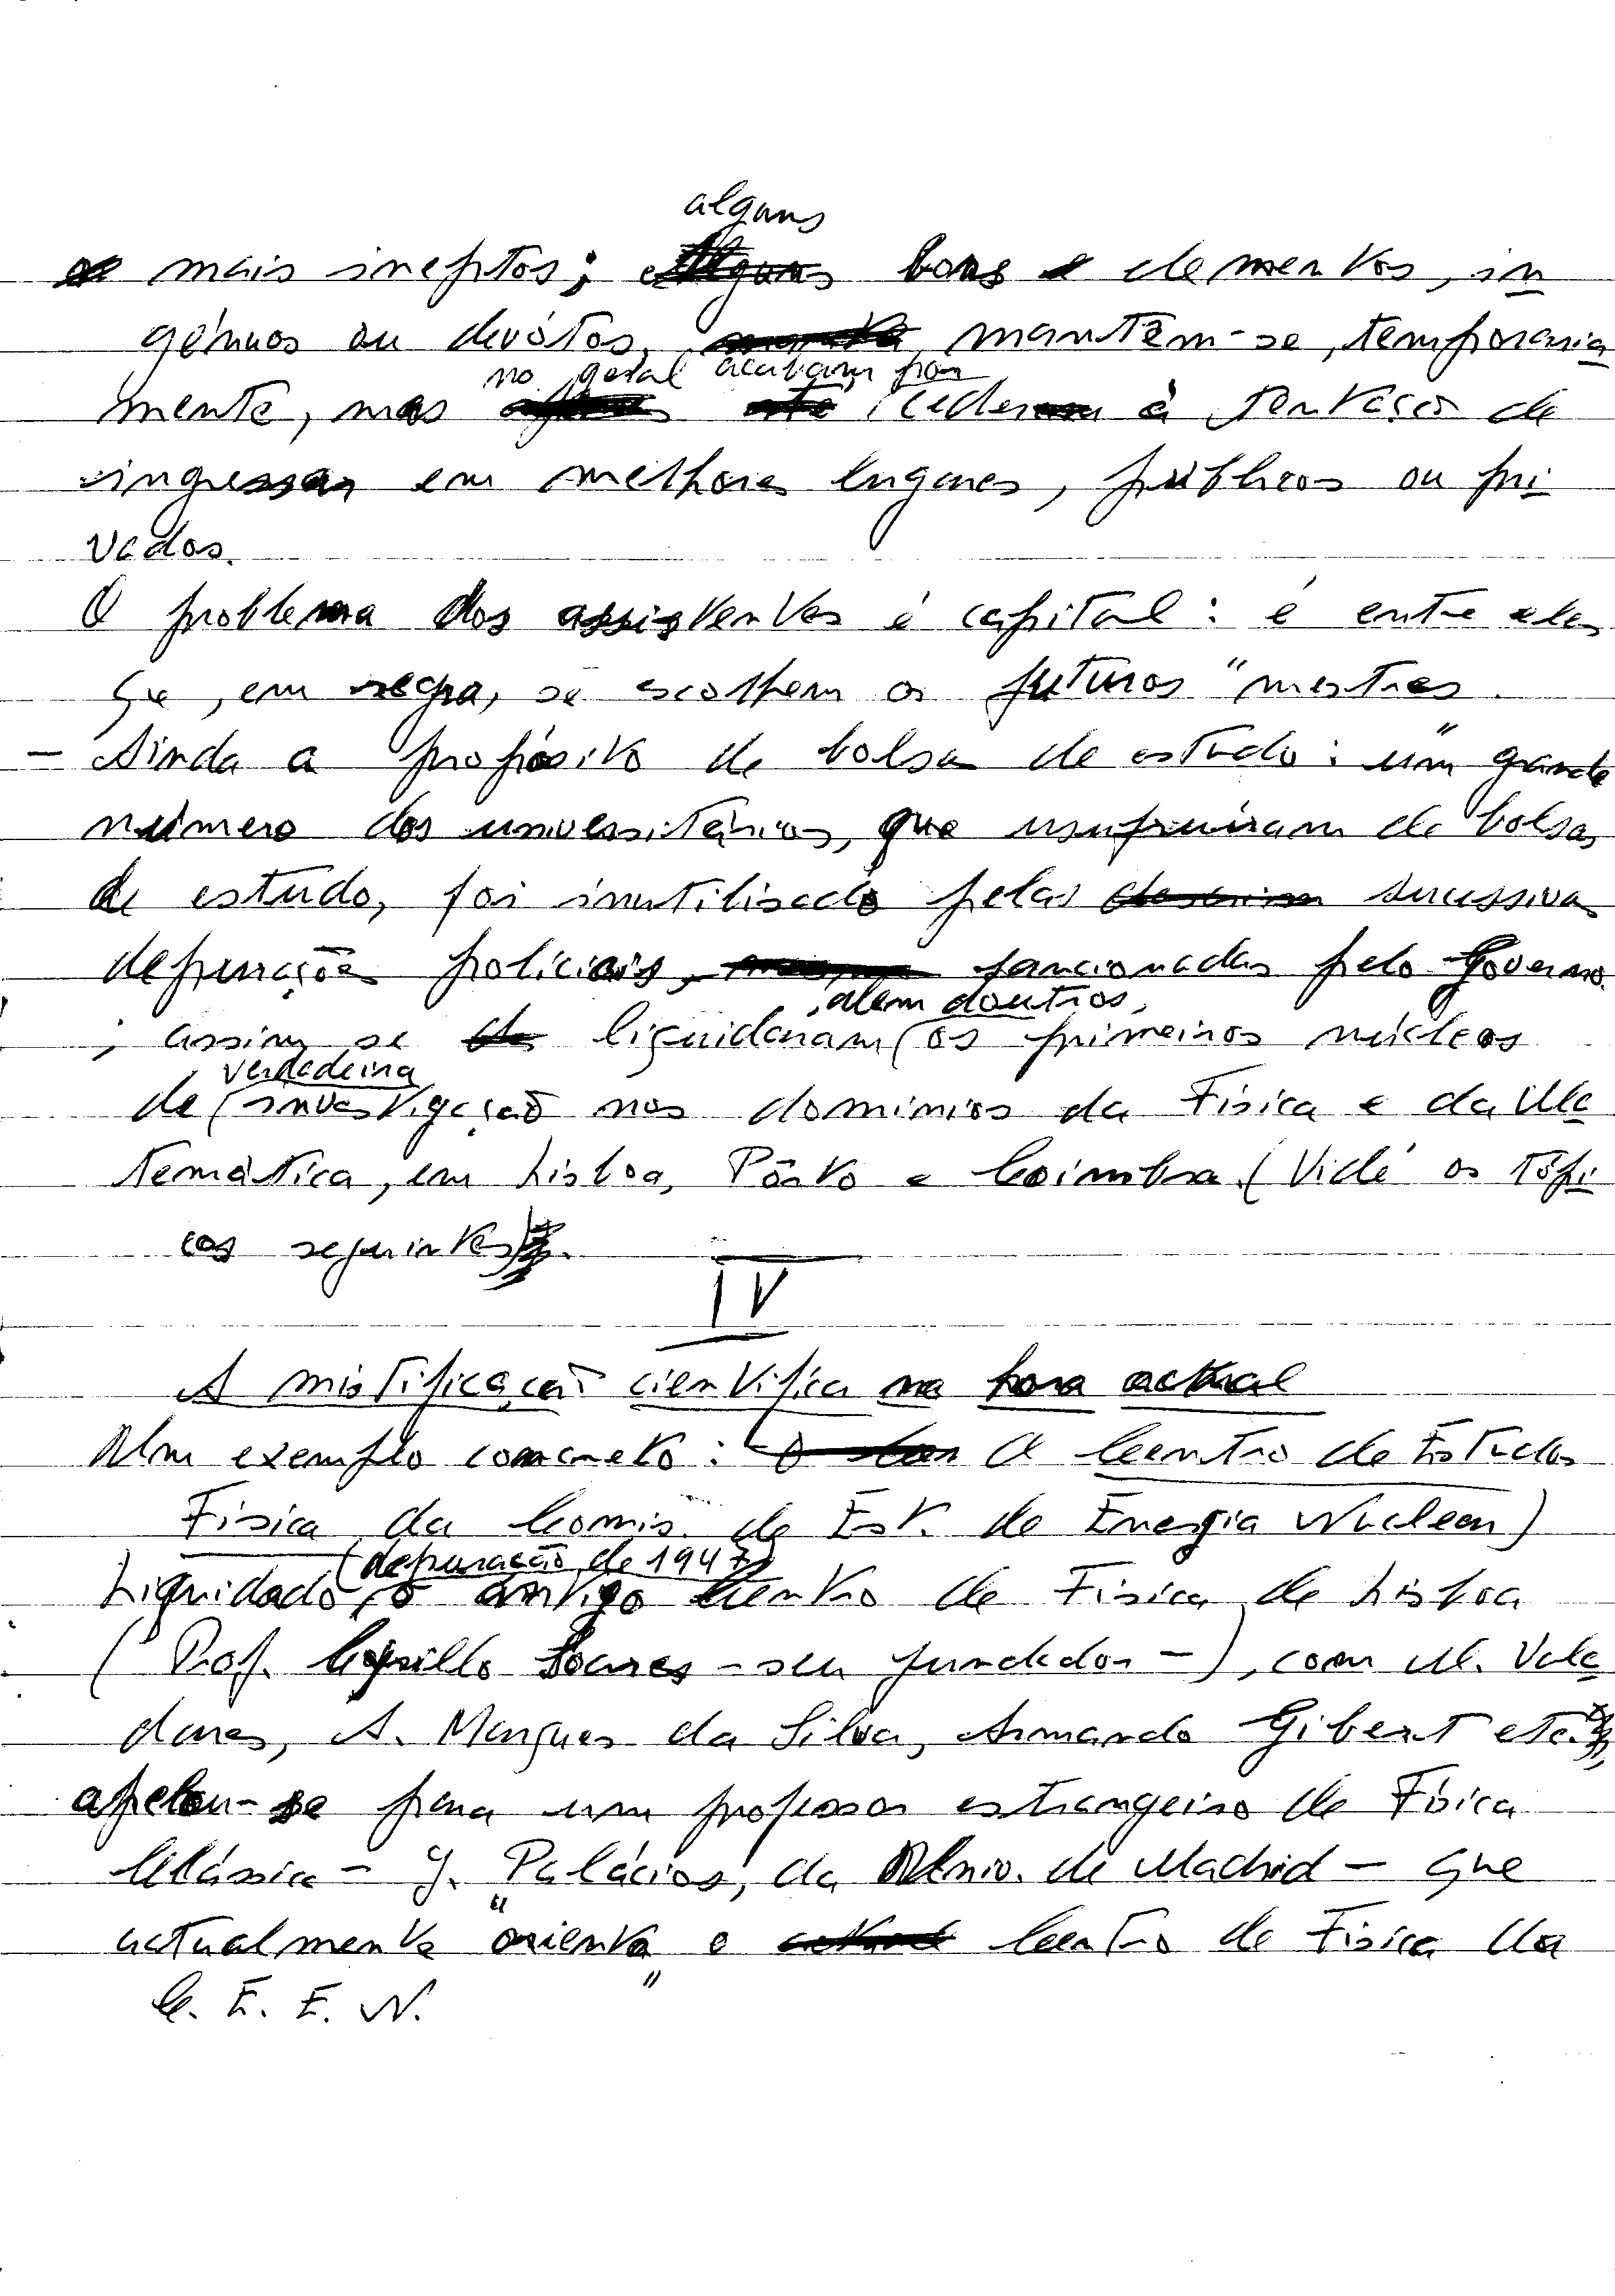 alguns
mais ineptos; bons elementos, in
génuos ou devótos, mantêm-se, temporaria
no geral acabam por
mente, mas ceder à tentação de
ingressar em melhores lugares, públicos ou pri
vados.
O problema dos assistentes é capital: é entre eles
que, em regra, se escolhem os futuros "mestres"
- Ainda a propósito de bolsas de estudo: um grande
número dos universitários, que usufruiram de bolsas
de estudo, foi inutilisado pelas sucessivas
depurações policiais, sancionadas pelo Governo.
, alem doutros,
; assim se liquidaram os primeiros núcleos
verdadeira
de investigação nos dominios da Física e da Ma
temática, em Lisboa, Pôrto e Coimbra. (Vidé os tópi
cos seguintes).
IV
A mistificação cientifica na hora actual
Um exemplo concreto: O Centro de Estudos
Física da Comis. de Est. de Energia Nuclear)
(depuração de 1947)
Liquidado o antigo Centro de Física de Lisboa
(Prof. Cyrillo Soares - seu fundador -), com M. Vala
dares, A. Marques da Silva, Armando Gibert etc.,
apelou-se para um professor estrangeiro de Física
Clássica - J. Palácios, da Univ. de Madrid - que
actualmente "orienta" o Centro de Física da
C. E. E. N.